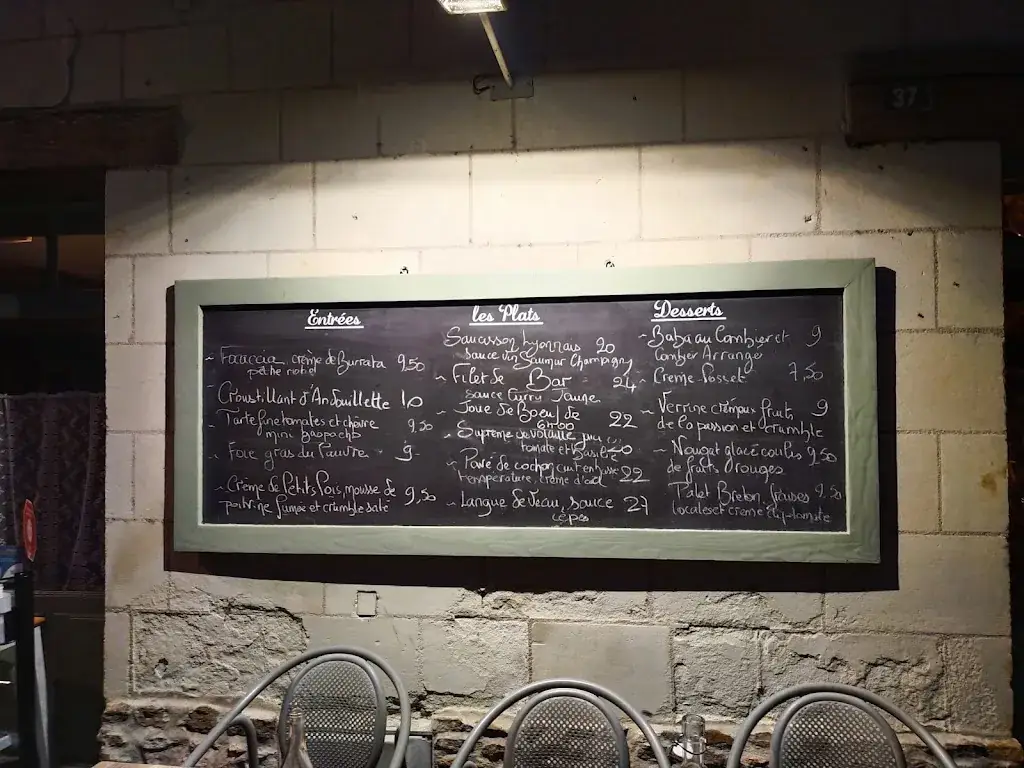 37
Entrées
crème de Burrata 9,50
Croustillant d'Andouillette 10
Tarte fine tomates et chèvre 9,50
mini gaspacho
Foie gras du Pauvre 9
Crème de Petits Pois, mousse de 9,50
poitrine fumée et crumble salé
les Plats
Saucisson Lyonnais 20
sauce vin Saumur Champigny
Filet de Bar 24
sauce Curry Jaune
Joue de Boeuf de 22
6h00
Suprême de volaille jus 20
tomate et Basilic
Pavé de cochon cuit en basse 22
température, crème d'ail
Langue de Veau, sauce 21
cèpes
Desserts
Baba au Combier et 9
Combier Arrangé
Crème Posset 7,50
Verrine crémeux fruits 9
de la passion et crumble
Nougat glacé coulis 9,50
de fruits rouges
Palet Breton, fraises 9,50
locales et crème